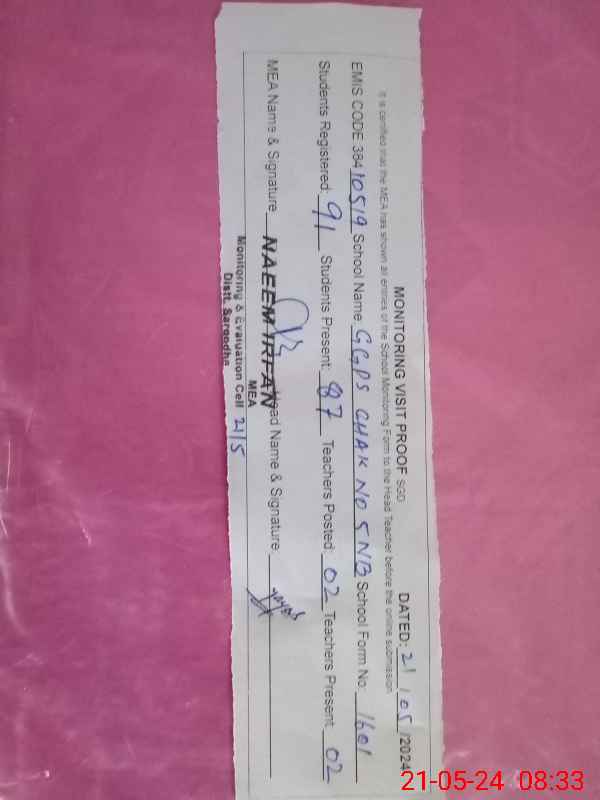 MONITORING VISIT PROOF SGD DATED: 21/05/2024
It is certified that the MEA has shown all entries of the School Monitoring Form to the Head Teacher before the online submission
EMIS CODE 38410519 School Name GGPS CHAK NO 5NB School Form No: 1601
Students Registered: 91 Students Present: 87 Teachers Posted: 02 Teachers Present 02
MEA Name & Signature NAEEM IRFAN Head Name & Signature:
MEA
Monitoring & Evaluation Cell 21/5
Distt. Sargodha
21-05-24 08:33